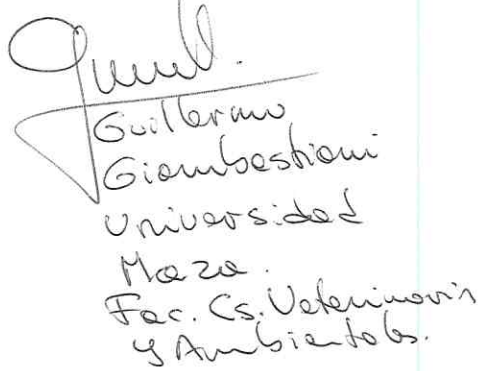 Guillermo
Giambastiani
Universidad
Maza.
Fac. Cs. Veterinaria
y Ambientales.